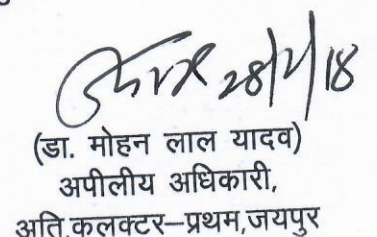 28/2/18
(डा. मोहन लाल यादव)
अपीलीय अधिकारी,
अति.कलक्टर–प्रथम,जयपुर